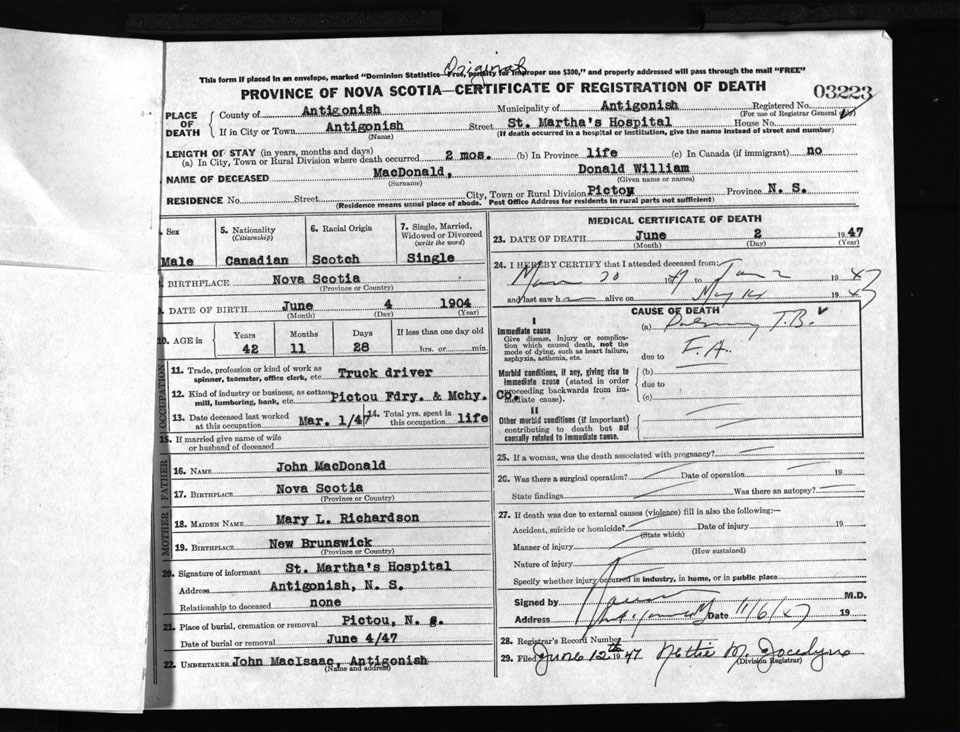 Original
This form if placed in an envelope, marked "Dominion Statistics—Free, penalty for improper use $300," and properly addressed will pass through the mail "FREE"
PROVINCE OF NOVA SCOTIA—CERTIFICATE OF REGISTRATION OF DEATH 03223
PLACE OF DEATH
County of Antigonish Municipality of Antigonish Registered No.
(For use of Registrar General
If in City or Town Antigonish Street St. Martha's Hospital House No.
(Name) (If death occurred in a hospital or institution, give the name instead of street and number)
LENGTH OF STAY (in years, months and days)
(a) In City, Town or Rural Division where death occurred 2 mos. (b) In Province life (c) In Canada (if immigrant) no
NAME OF DECEASED MacDonald, Donald William
(Surname) (Given name or names)
RESIDENCE No. Street City, Town or Rural Division Pictou Province N. S.
(Residence means usual place of abode. Post Office Address for residents in rural parts not sufficient)
Sex 5. Nationality (Citizenship) 6. Racial Origin 7. Single, Married, Widowed or Divorced (write the word)
Male Canadian Scotch Single
BIRTHPLACE Nova Scotia
(Province or Country)
DATE OF BIRTH June 4 1904
(Month) (Day) (Year)
10. AGE in Years Months Days If less than one day old
42 11 28 hrs. or min.
OCCUPATION
11. Trade, profession or kind of work as spinner, teamster, office clerk, etc. Truck driver
12. Kind of industry or business, as cotton mill, lumbering, bank, etc. Pictou Fdry. & Mchy. Co.
13. Date deceased last worked at this occupation Mar. 1/47 14. Total yrs. spent in this occupation life
15. If married give name of wife or husband of deceased
FATHER
16. NAME John MacDonald
17. BIRTHPLACE Nova Scotia
(Province or Country)
MOTHER
18. MAIDEN NAME Mary L. Richardson
19. BIRTHPLACE New Brunswick
(Province or Country)
20. Signature of informant St. Martha's Hospital
Address Antigonish, N. S.
Relationship to deceased none
21. Place of burial, cremation or removal Pictou, N. S.
Date of burial or removal June 4/47
22. UNDERTAKER John MacIsaac, Antigonish
(Name and address)
MEDICAL CERTIFICATE OF DEATH
23. DATE OF DEATH June 2 1947
(Month) (Day) (Year)
24. I HEREBY CERTIFY that I attended deceased from:
20 1947 to June 2 1947
and last saw h alive on May 14 1947
CAUSE OF DEATH
I
Immediate cause
Give disease, injury or complication which caused death, not the mode of dying, such as heart failure, asphyxia, asthenia, etc.
(a) Pulmonary T.B.
due to
Morbid conditions, if any, giving rise to immediate cause (stated in order proceeding backwards from immediate cause).
(b)
due to
(c)
II
Other morbid conditions (if important) contributing to death but not causally related to immediate cause.
25. If a woman, was the death associated with pregnancy?
26. Was there a surgical operation? Date of operation 19
State findings Was there an autopsy?
27. If death was due to external causes (violence) fill in also the following:—
Accident, suicide or homicide? Date of injury 19
(State which)
Manner of injury
(How sustained)
Nature of injury
Specify whether injury occurred in industry, in home, or in public place
Signed by M.D.
Address Date 11/6/47 19
28. Registrar's Record Number
29. Filed June 12th 1947 Nettie M. Jocelyn
(Division Registrar)